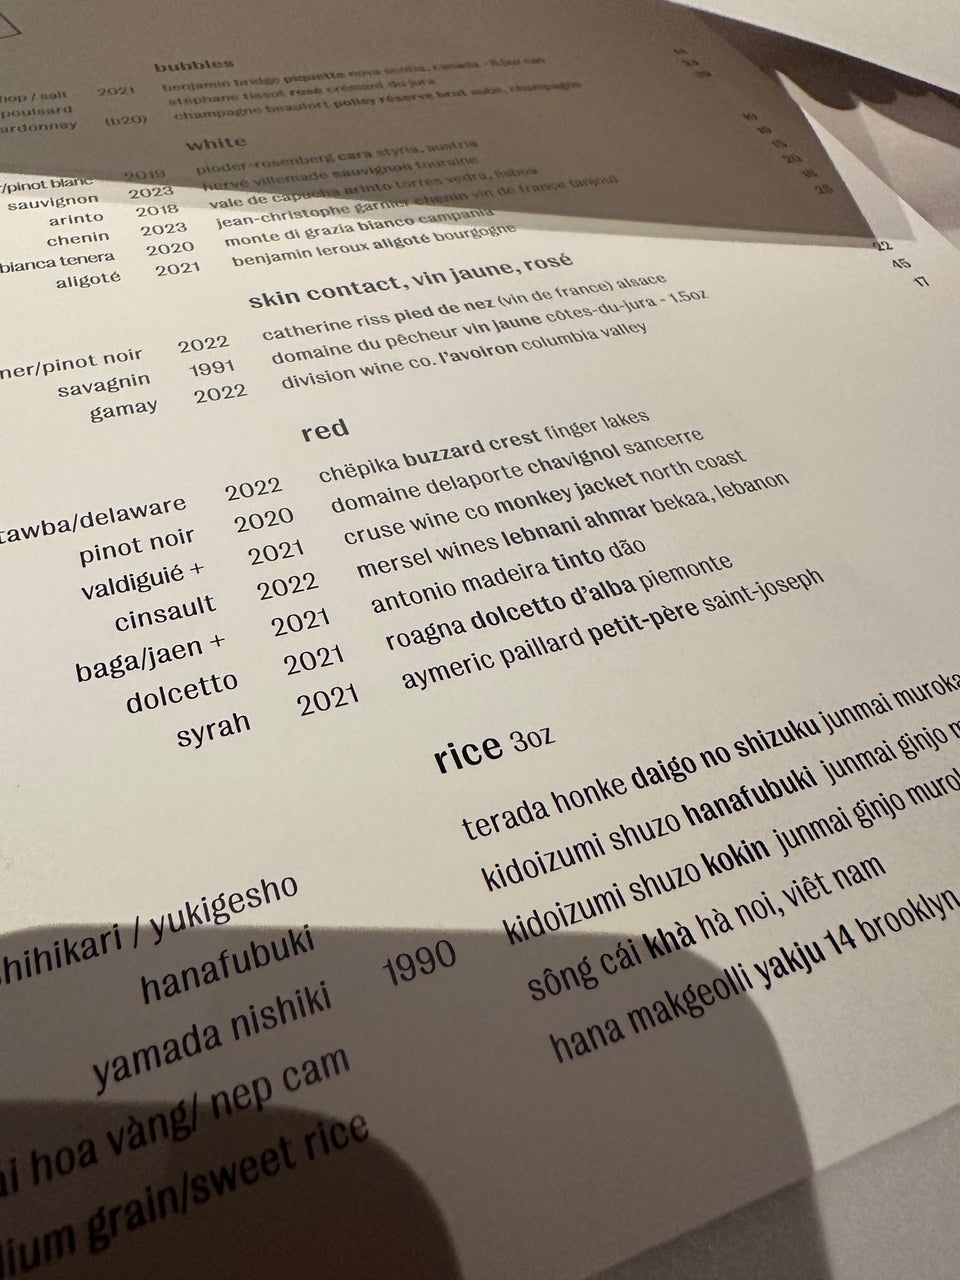 bubbles
hop / salt 2021 benjamin bridge piquette nova scotia, canada
poulsard stéphane tissot rosé crémant du jura
ardonnay (b20) champagne beaufort polisy réserve brut aube, champagne
white
/pinot blanc 2019 ploder-rosenberg cara styria, austria 10
sauvignon 2023 hervé villemade sauvignon touraine
arinto 2018 vale de capucha arinto torres vedra, lisboa
chenin 2023 jean-christophe garnier chenin vin de france (anjou) 20
bianca tenera 2020 monte di grazia bianco campania
aligoté 2021 benjamin leroux aligoté bourgogne
skin contact, vin jaune, rosé
ner/pinot noir 2022 catherine riss pied de nez (vin de france) alsace 22
savagnin 1991 domaine du pêcheur vin jaune côtes-du-jura - 1.5oz 45
gamay 2022 division wine co. l'avoiron columbia valley 17
red
tawba/delaware 2022 chëpika buzzard crest finger lakes
pinot noir 2020 domaine delaporte chavignol sancerre
valdiguié + 2021 cruse wine co monkey jacket north coast
cinsault 2022 mersel wines lebnani ahmar bekaa, lebanon
baga/jaen + 2021 antonio madeira tinto dão
dolcetto 2021 roagna dolcetto d'alba piemonte
syrah 2021 aymeric paillard petit-père saint-joseph
rice 3oz
shihikari / yukigesho terada honke daigo no shizuku junmai muroka
hanafubuki kidoizumi shuzo hanafubuki junmai ginjo m
yamada nishiki 1990 kidoizumi shuzo kokin junmai ginjo murok
ái hoa vàng/ nep cam sông cái khà hà noi, viêt nam
dium grain/sweet rice hana makgeolli yakju 14 brooklyn